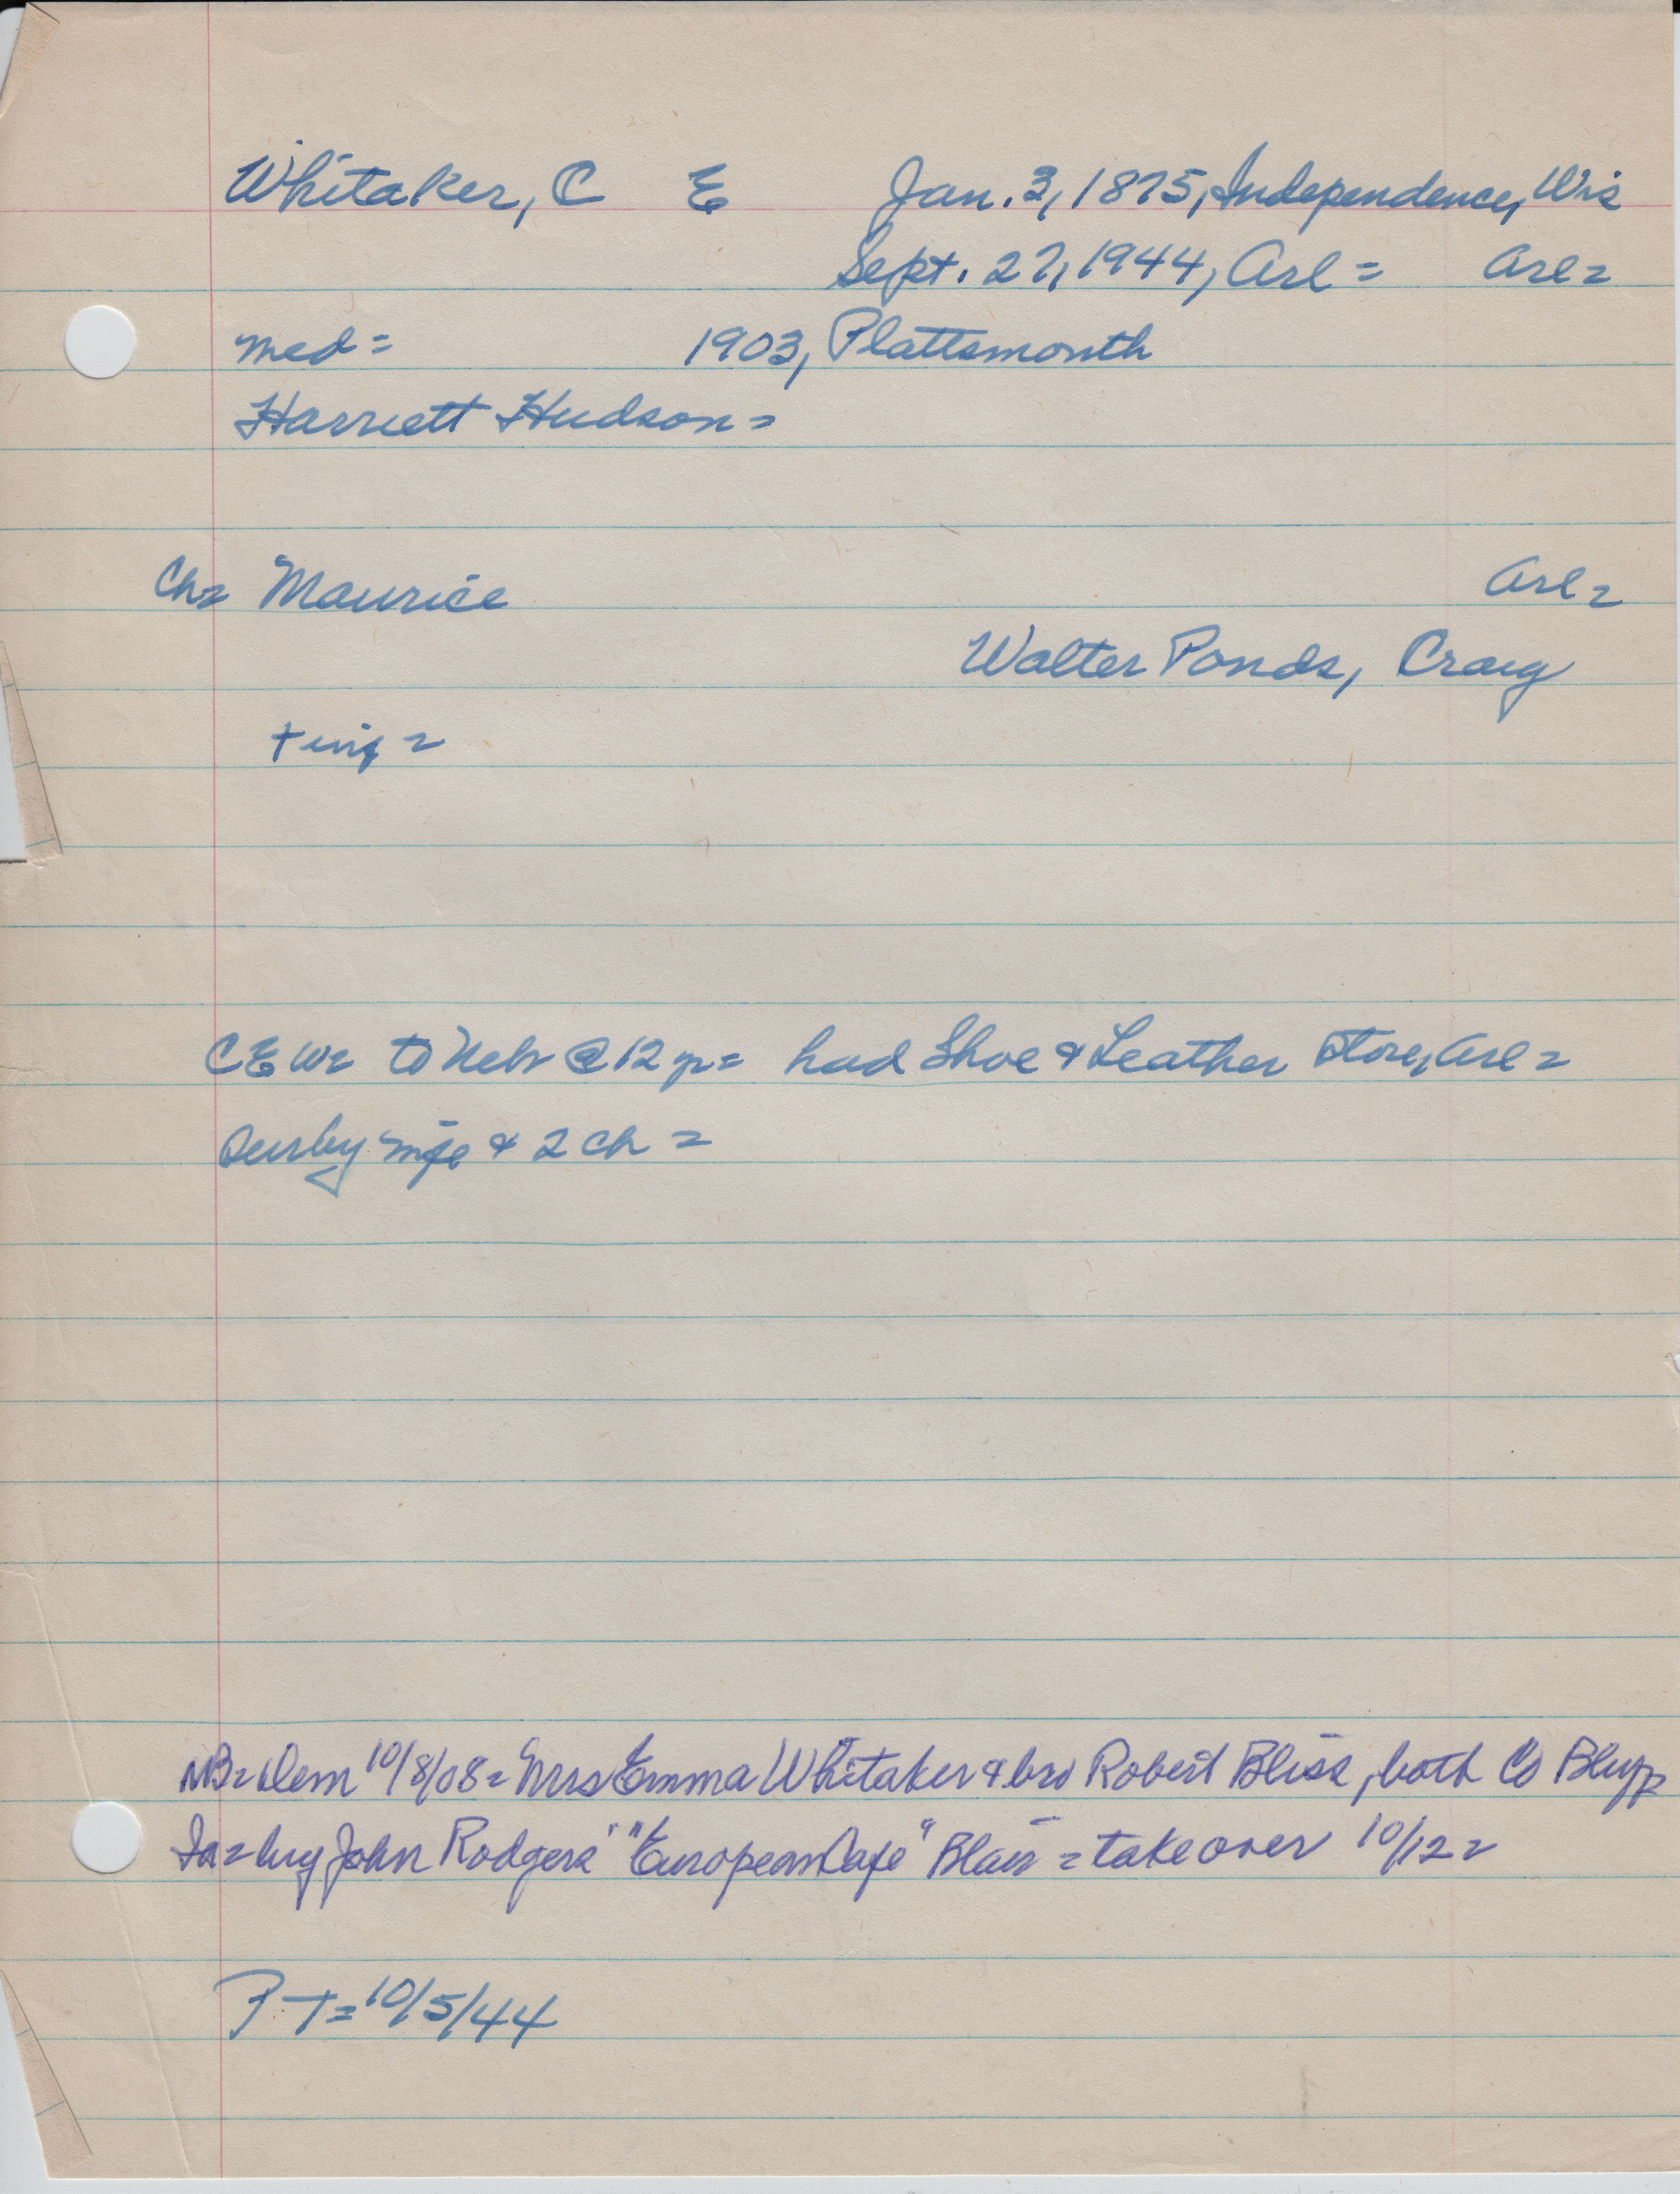 Whitaker, C E Jan. 3, 1875, Independence, Wis
Sept. 27, 1944, Arl = Arl =
med = 1903, Plattsmouth
Harriett Hudson =
Ch = Maurice Arl =
Walter Ponds, Craig
+ inf =
C E W = to Neb @ 12 yr = had Shoe & Leather Store, Arl =
Surby wife & 2 ch =
NB = Dem 10/8/08 = Mrs Emma Whitaker & bro Robert Bliss, both Co Bluff
Ia = buy John Rodgers' "European Cafe" Blair = take over 10/12 =
P T = 10/5/44